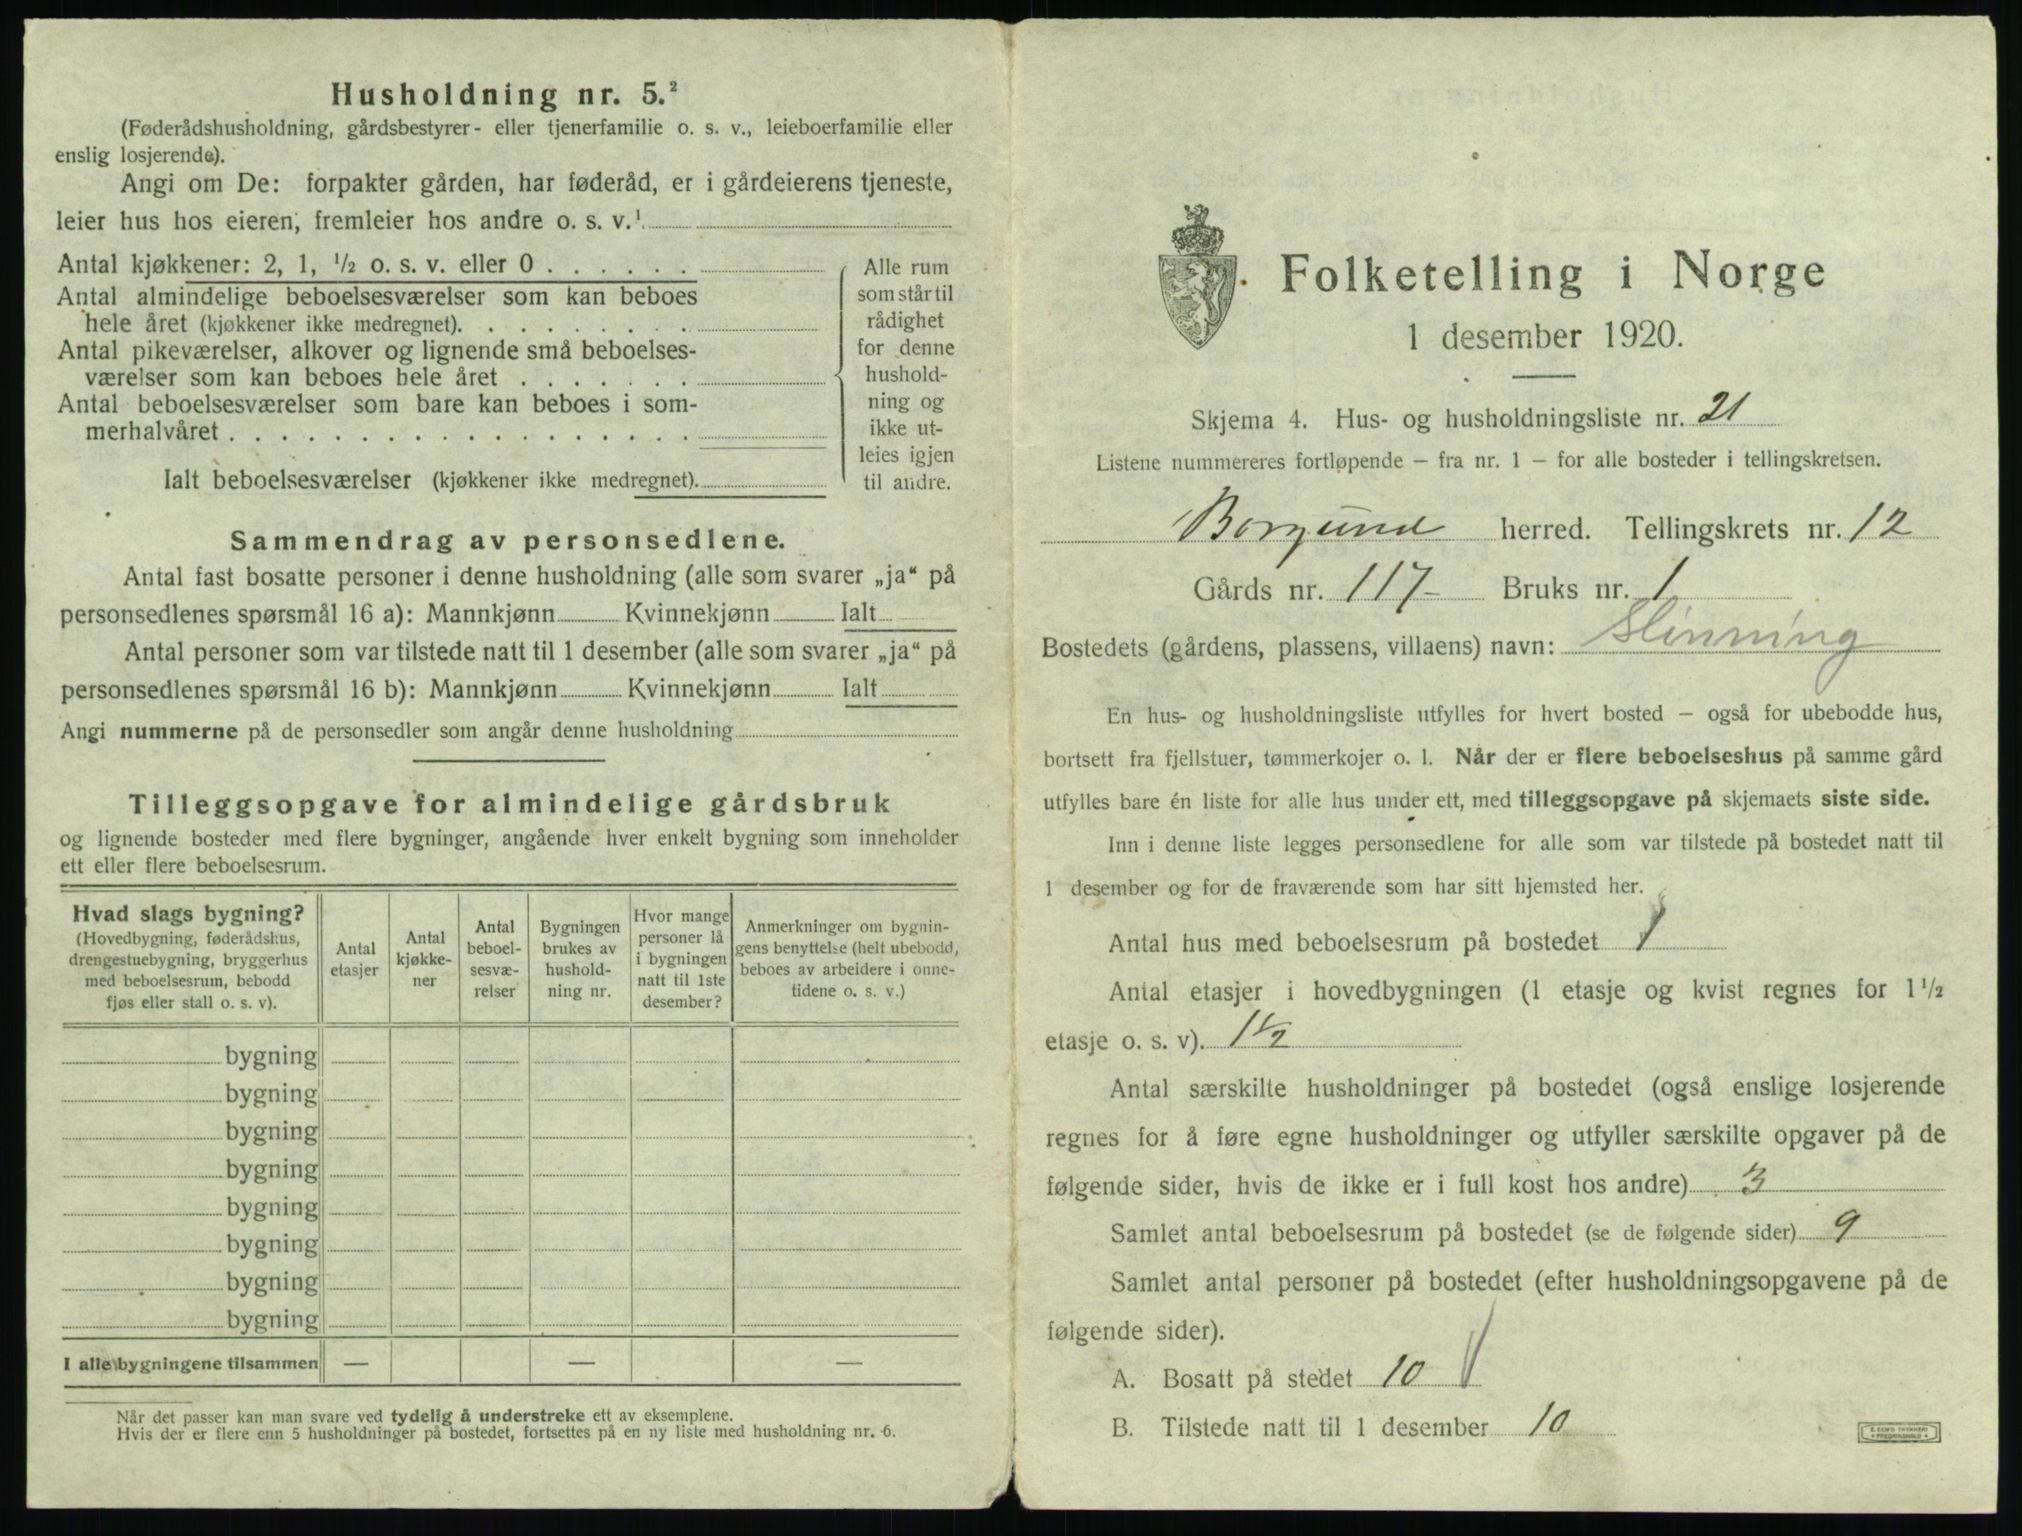 Husholdning nr. 5.²
(Føderådshusholdning, gårdsbestyrer- eller tjenerfamilie o. s. v., leieboerfamilie eller
enslig losjerende).
Angi om De: forpakter gården, har føderåd, er i gårdeierens tjeneste,
leier hus hos eieren, fremleier hos andre o. s. v.¹
Antal kjøkkener: 2, 1, ½ o. s. v. eller 0 . . . . . .
Antal almindelige beboelsesværelser som kan beboes
hele året (kjøkkener ikke medregnet). . . . . . . . .
Antal pikeværelser, alkover og lignende små beboelses-
værelser som kan beboes hele året . . . . . . .
Antal beboelsesværelser som bare kan beboes i som-
merhalvåret . . . . . . . . . . . . . . . . . .
Ialt beboelsesværelser (kjøkkener ikke medregnet).
Alle rum
som står til
rådighet
for denne
hushold-
ning og
ikke ut-
leies igjen
til andre.
Sammendrag av personsedlene.
Antal fast bosatte personer i denne husholdning (alle som svarer „ja“ på
personsedlenes spørsmål 16 a): Mannkjønn Kvinnekjønn Ialt
Antal personer som var tilstede natt til 1 desember (alle som svarer „ja“ på
personsedlenes spørsmål 16 b): Mannkjønn Kvinnekjønn Ialt
Angi nummerne på de personsedler som angår denne husholdning
Tilleggsopgave for almindelige gårdsbruk
og lignende bosteder med flere bygninger, angående hver enkelt bygning som inneholder
ett eller flere beboelsesrum.
Hvad slags bygning?
(Hovedbygning, føderådshus,
drengestuebygning, bryggerhus
med beboelsesrum, bebodd
fjøs eller stall o. s. v).
Antal
etasjer
Antal
kjøkke-
ner
Antal
beboel-
sesvæ-
relser
Bygningen
brukes av
hushold-
ning nr.
Hvor mange
personer lå
i bygningen
natt til 1ste
desember?
Anmerkninger om bygnin-
gens benyttelse (helt ubebodd,
beboes av arbeidere i onne-
tidene o. s. v.)
bygning
bygning
bygning
bygning
bygning
bygning
bygning
bygning
I alle bygningene tilsammen — — —
Når det passer kan man svare ved tydelig å understreke ett av eksemplene.
Hvis der er flere enn 5 husholdninger på bostedet, fortsettes på en ny liste med husholdning nr. 6.
Folketelling i Norge
1 desember 1920.
Skjema 4. Hus- og husholdningsliste nr. 21
Listene nummereres fortløpende – fra nr. 1 – for alle bosteder i tellingskretsen.
Borgund herred. Tellingskrets nr. 12
Gårds nr. 117- Bruks nr. 1
Bostedets (gårdens, plassens, villaens) navn: Slinning
En hus- og husholdningsliste utfylles for hvert bosted – også for ubebodde hus,
bortsett fra fjellstuer, tømmerkojer o. l. Når der er flere beboelseshus på samme gård
utfylles bare én liste for alle hus under ett, med tilleggsopgave på skjemaets siste side.
Inn i denne liste legges personsedlene for alle som var tilstede på bostedet natt til
1 desember og for de fraværende som har sitt hjemsted her.
Antal hus med beboelsesrum på bostedet 1
Antal etasjer i hovedbygningen (1 etasje og kvist regnes for 1½
etasje o. s. v). 1½
Antal særskilte husholdninger på bostedet (også enslige losjerende
regnes for å føre egne husholdninger og utfyller særskilte opgaver på de
følgende sider, hvis de ikke er i full kost hos andre) 3
Samlet antal beboelsesrum på bostedet (se de følgende sider) 9
Samlet antal personer på bostedet (efter husholdningsopgavene på de
følgende sider).
A. Bosatt på stedet 10
B. Tilstede natt til 1 desember 10